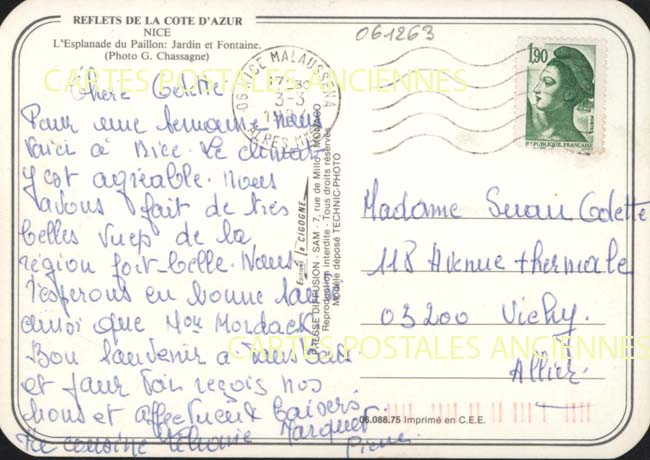 REFLETS DE LA COTE D'AZUR
NICE
L'Esplanade du Paillon: Jardin et Fontaine.
(Photo G. Chassagne)
061263
06 NICE MALAUSSENA
3-3
ALPES
1,90
REPUBLIQUE FRANCAISE
CARTES POSTALES ANCIENNES
Chère Colette
Pour une semaine nous
voici à Nice. Le climat
y est agréable. Nous
avons fait de très
belles vues de la
région fort belle. Nous
t'esperons en bonne
ainsi que
Bon souvenir à
et pour toi reçois nos
bons et affectueux baisers.
Ta cousine Marquet
Pierre.
Editions la CIGOGNE
PRESSE DIFFUSION - SAM - 7, rue de Millo - MONACO
Reproduction interdite - Tous droits réservés
Modèle déposé TECHNIC-PHOTO
Madame Colette
118 Avenue thermale
03200 Vichy.
Allier.
CARTES POSTALES ANCIENNES
06.088.75 Imprimé en C.E.E.